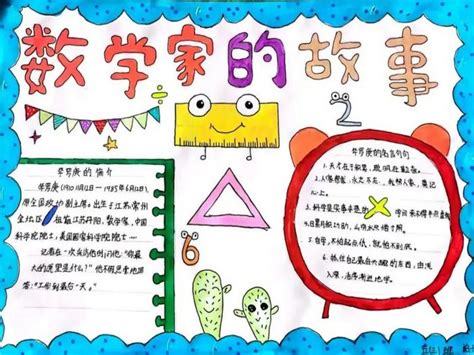 数学家的故事
2
华罗庚的简介
华罗庚(1910.11.12—1985年6月12),
原全国政协副主席。出生于江苏常州
金坛区,祖籍江苏丹阳,数学家,中国
科学院院士,美国国家科学院院士…
记者在一次采访他时问他:"你最
大的愿望是什么?"他不假思索地回
答:"工作到最后一天。"
6
华罗庚的名言句句
1.天才在于积累,聪明在勤奋。
2.人家帮我,永志不忘,我帮人家,莫记
心上。
3.科学是实事求是的学问,来不得半点虚假
4.日累月积
5.自学,不怕起点低,就怕不到底。
6.抓住自己最有兴趣的东西,由浅
入深,循序渐进地学。